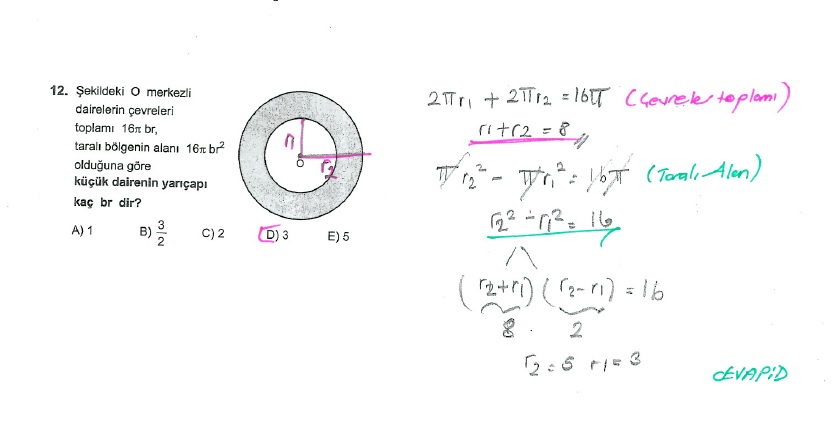 12. Şekildeki O merkezli
dairelerin çevreleri
toplamı 16π br,
taralı bölgenin alanı 16π br²
olduğuna göre
küçük dairenin yarıçapı
kaç br dir?
A) 1 B) 3/2 C) 2 D) 3 E) 5
r1
O
r2
2πr1 + 2πr2 = 16π (Çevreler toplamı)
r1 + r2 = 8
πr2² - πr1² = 16π (Taralı Alan)
r2² - r1² = 16
(r2+r1) (r2-r1) = 16
8 . 2
r2 = 5 r1 = 3
CEVAP:D